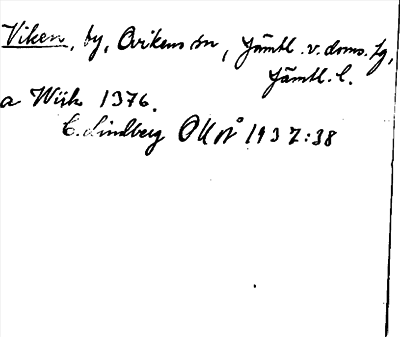 Viken, by, Ovikens sn, Jämtl. v. doms. tg,
Jämtl. l.
a Wiik 1376.
C. Lindberg OUÅ 1937:38